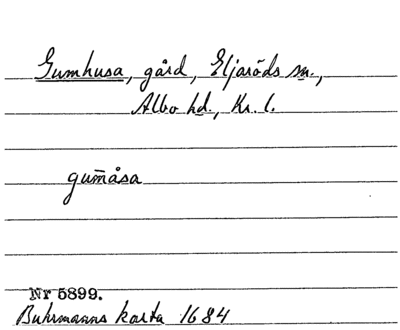 Gumhusa, gård, Eljaröds sn.,
Albo hd., Kr. l.
gum̅åsa
Nr 5899.
Buhrmanns karta 1684